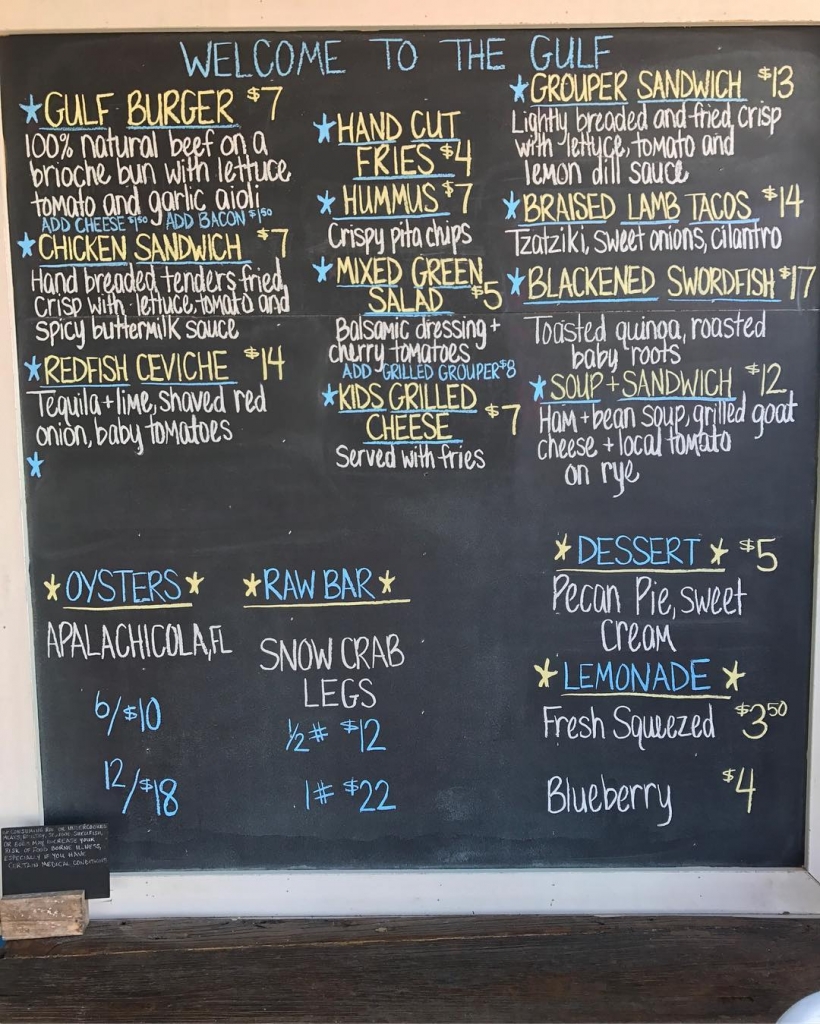 WELCOME TO THE GULF
★GULF BURGER $7
100% natural beef on a
brioche bun with lettuce
tomato and garlic aioli
ADD CHEESE $1.50 ADD BACON $1.50
★CHICKEN SANDWICH $7
Hand breaded tenders fried
crisp with lettuce, tomato and
spicy buttermilk sauce
★REDFISH CEVICHE $14
Tequila + lime, shaved red
onion, baby tomatoes
★
★HAND CUT
FRIES $4
★HUMMUS $7
Crispy pita chips
★MIXED GREEN
SALAD $5
Balsamic dressing +
cherry tomatoes
ADD GRILLED GROUPER $8
★KIDS GRILLED
CHEESE $7
Served with fries
★GROUPER SANDWICH $13
Lightly breaded and fried crisp
with lettuce, tomato and
lemon dill sauce
★BRAISED LAMB TACOS $14
Tzatziki, sweet onions, cilantro
★BLACKENED SWORDFISH $17
Toasted quinoa, roasted
baby roots
★SOUP + SANDWICH $12
Ham + bean soup, grilled goat
cheese + local tomato
on rye
★OYSTERS★
APALACHICOLA, FL
6/$10
12/$18
★RAW BAR★
SNOW CRAB
LEGS
½# $12
1# $22
★DESSERT★ $5
Pecan Pie, sweet
cream
★LEMONADE★
Fresh Squeezed $3.50
Blueberry $4
OR EGGS MAY INCREASE YOUR
RISK OF FOOD BORNE ILLNESS,
ESPECIALLY IF YOU HAVE
CERTAIN MEDICAL CONDITIONS